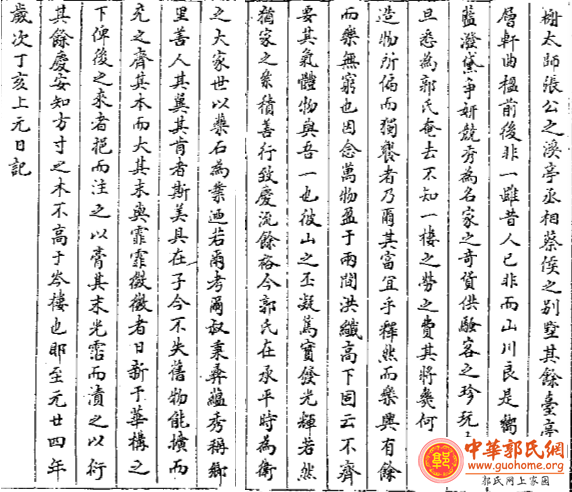 榭太師張公之溪亭丞相蔡侯之別墅其餘臺亭
層軒曲榲前後非一雖昔人已非而山川良是嚮
藍澄黛爭妍競秀為名家之奇貨供騷客之珍玩
旦悉為郭氏奄去不知一樓之勞之費其將幾何
造物所偏而獨饗者乃爾其富宜乎釋然而樂與有餘
而樂無窮也因念萬物盈于兩間洪纖高下固云不齊
要其氣體物與吾一也彼山之丕凝萬寶發光輝若然
猶家之衆積善行致慶流餘裕今郭氏在承平時為衛
之大家世以藥石為業迪若爾考爾叔秉彝蘊秀稱鄉
里善人其冀其肯者斯美具在子今不失舊物能擴而
充之齊其本而大其末與霏霏微微者日新于華構之
下俾後之來者挹而注之以膏其末光霑而漬之以衍
其餘慶安知方寸之木不高于岑樓也耶至元廿四年
歲次丁亥上元日記
中華郭氏網
www.guohome.org
郭氏网上家园